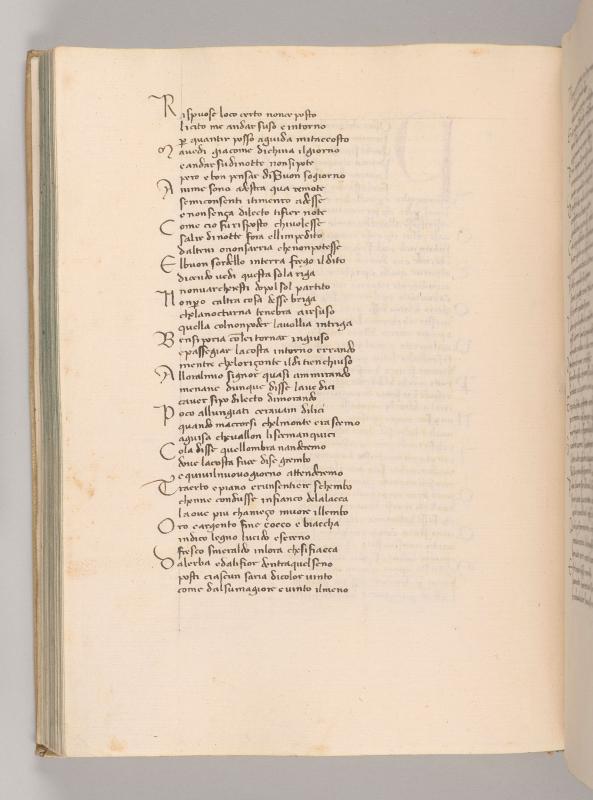 Rispuose loco certo nonce posto
licito me andar suso e intorno
per quantir posso aguida mitaccosto
Mauedi giacome dichina ilgiorno
e andar sudinotte nonsipote
pero e bon pensar diBuon sogiorno
Anime sono adestra qua remote
semiconsenti itimerro adesse
e nonsença dilecto tifier note
Come cio fu risposto chiuolesse
salir dinotte fora ellimpedito
daltrui o nonsarria che nonpotesse
Elbuon sordello interra frego ildito
dicendo uedi questa sola riga
nonuarcheresti dopol sol partito
Non pero caltra cosa desse briga
chelanocturna tenebra air suso
quella colnonpoder lauollia intriga
Bensi poria colei tornar ingiuso
e passegiar lacosta intorno errando
mentre cheloriçonte ildi tien chiuso
Alloralmio signor quasi ammirando
menane dunque disse laue dici
cauer sipo dilecto dimorando
Poco allungiati cerauam dilici
quando maccorsi chelmonte era scemo
aguisa cheuallon liscemanquici
Cola disse quellombra nanderemo
doue lacosta face dise grembo
e quiuilnuouo giorno attenderemo
Traerto e piano erunsentiere schembo
chenne condusse infianco delalacca
la oue piu chameço muore illembo
Oro e argento fine cocco e biaccha
indico legno lucido e sereno
fresco smeraldo inlora chesifiacca
Dalerba e dalifior dentraquelseno
posti ciascun saria dicolor uinto
come dalsu magiore e uinto ilmeno